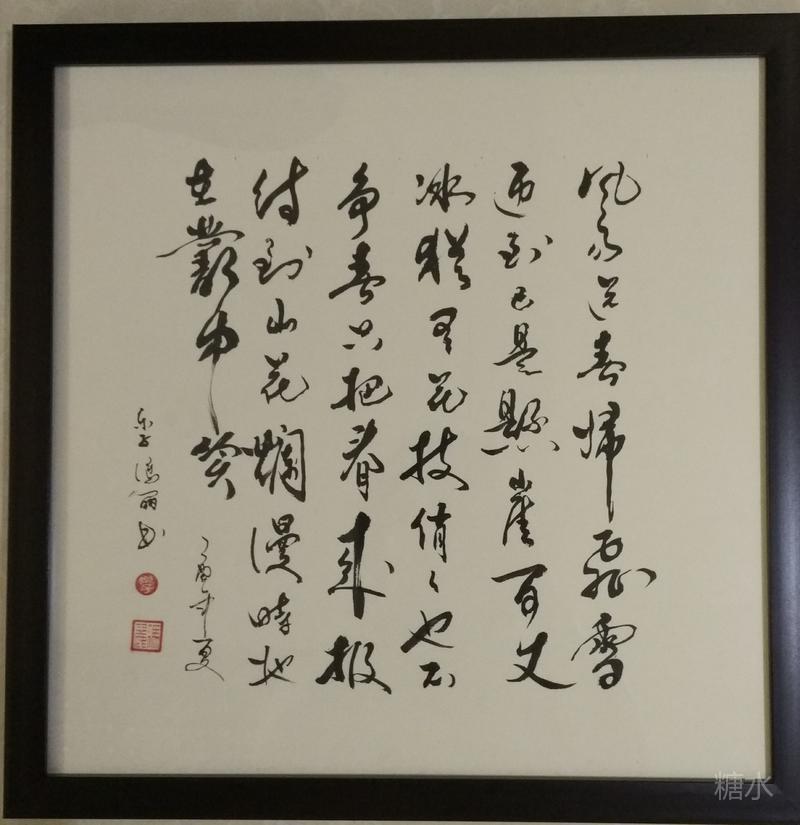 风雨送春归飛雪
迎到已是懸崖百丈
冰猶有花枝俏〻也不
争春只把春来报
待到山花爛漫時她
在叢中笑
丁酉年夏
书
糖水